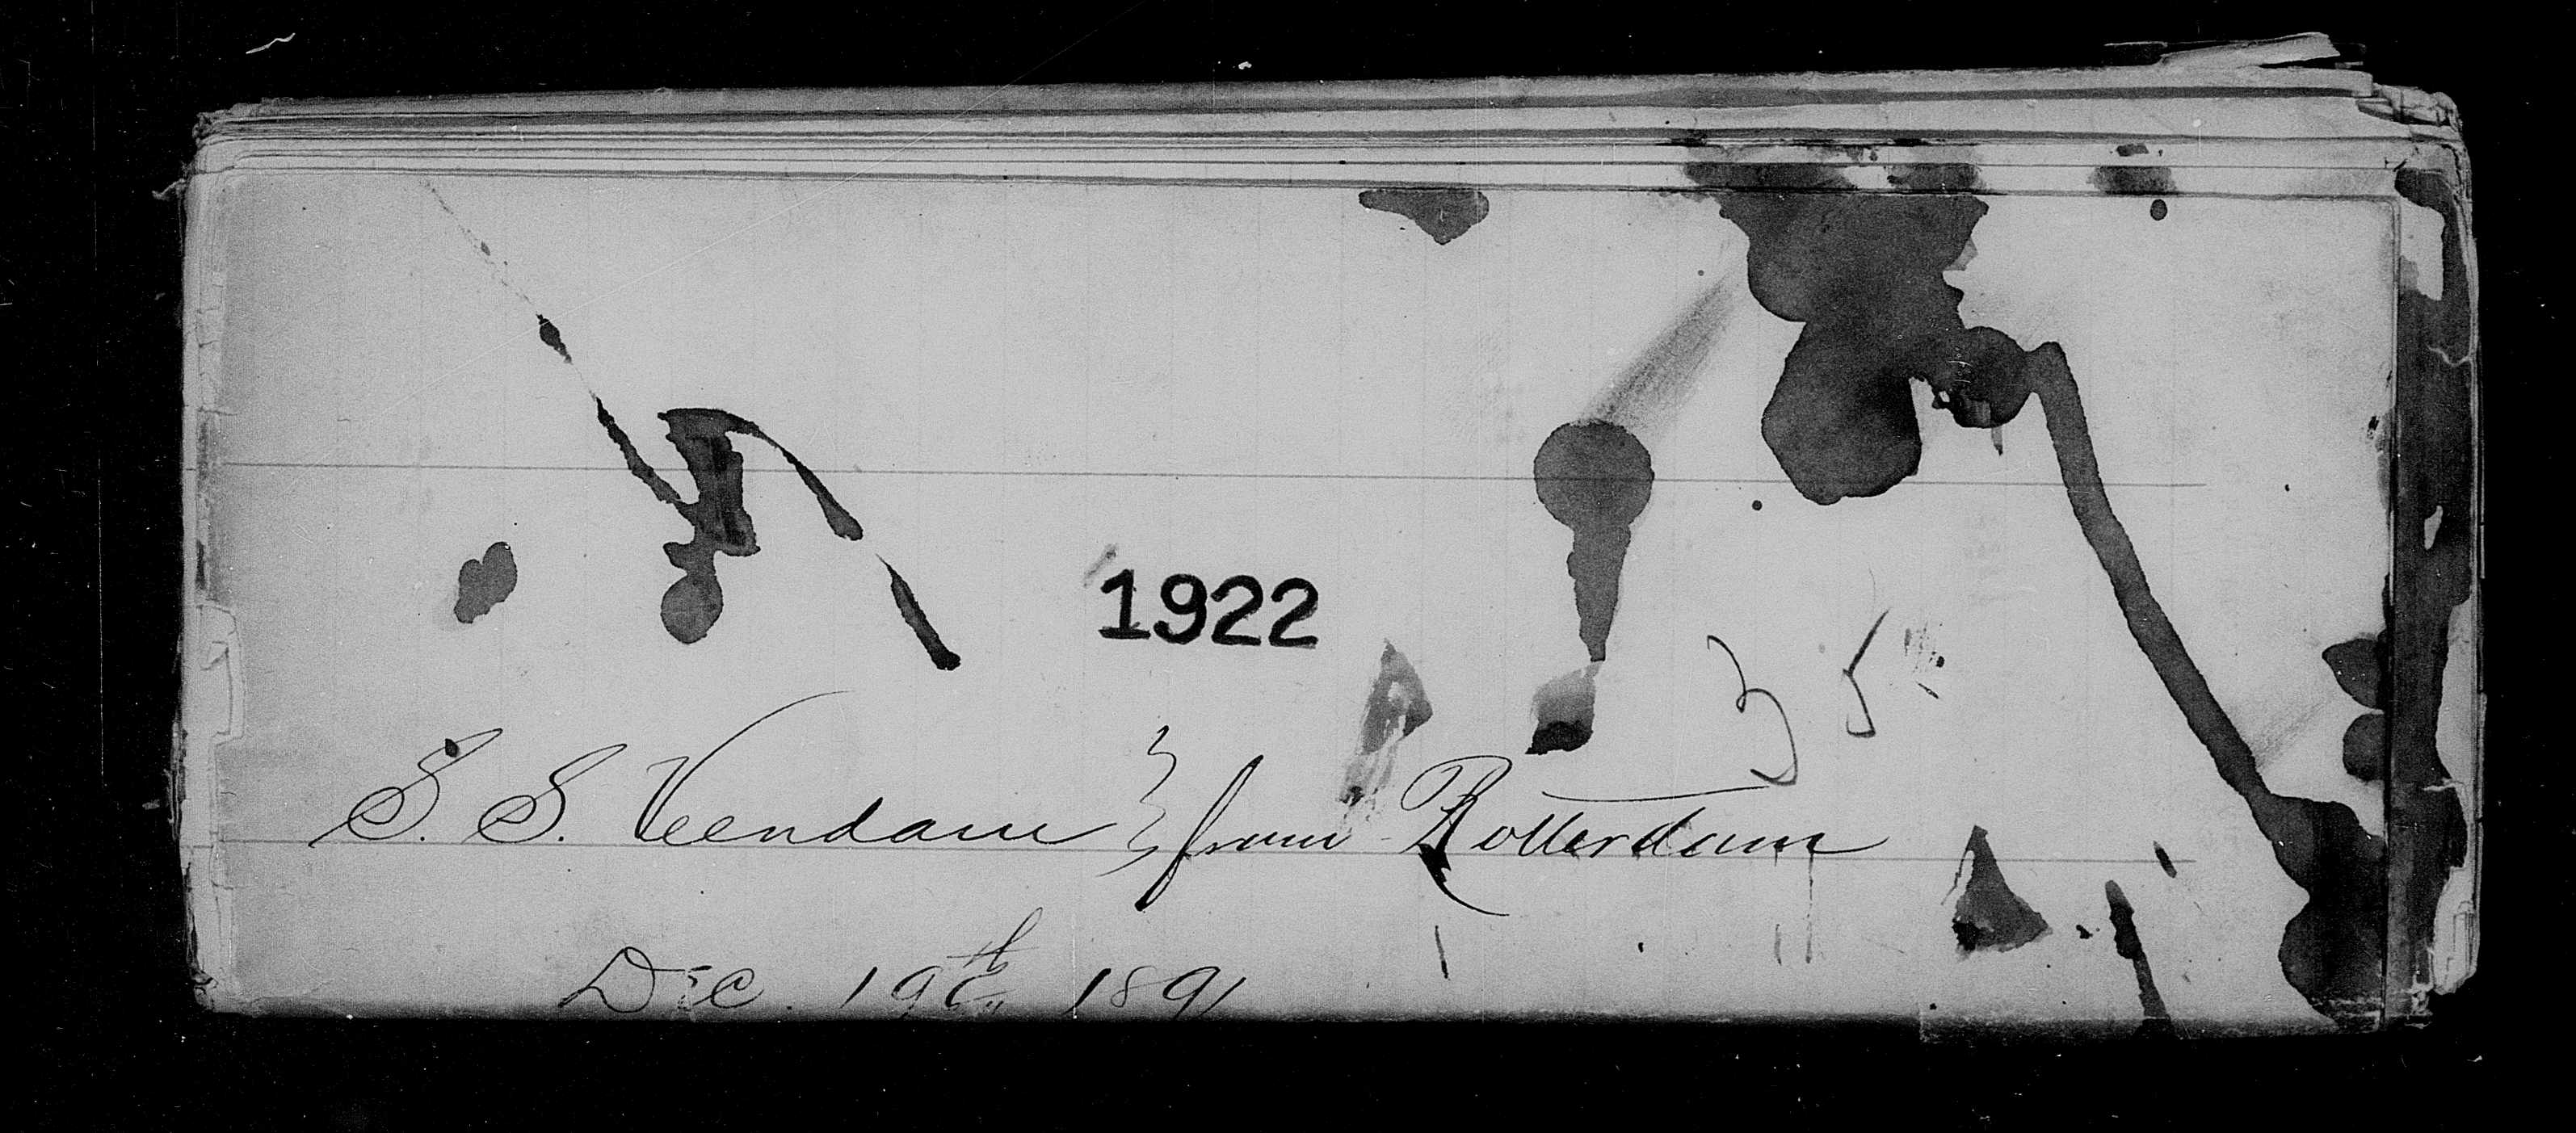 1922
35
S. S. Veendam } from Rotterdam
Dec. 19th 1891